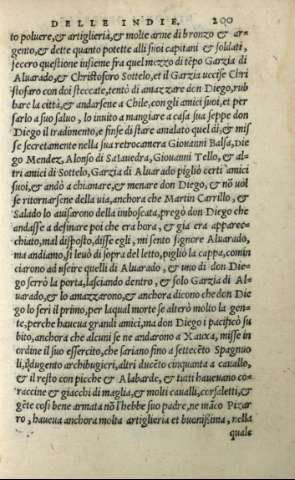 DELLE INDIE. 200
to poluere, & artiglieria, & molte arme di bronzo & ar-
gento, & dette quanto potette alli suoi capitani & soldati,
fecero questione insieme fra quel mezzo di tēpo Garzia di
Aluarado, & Christoforo Sottelo, et il Garzia uccise Chri
stofaro con doi steccate, tentò di amazzare don Diego, rub-
bare la città, & andarsene a Chile, con gli amici suoi, et per
farlo a suo saluo, lo inuito a mangiare a casa sua seppe don
Diego il tradimento, e finse di stare amalato quel dì, & mis
se secretamente nella sua retrocamera Giouanni Balsa, Die
go Mendez, Alonso di Sauedra, Giouanni Tello, & al-
tri amici di Sottelo, Garzia di Aluarado pigliò certi amici
suoi, & andò a chiamare, & menare don Diego, & nō uol
se ritornarsene della uia, anchora che Martin Carrillo, &
Salado lo auisarono della imboscata, pregò don Diego che
andasse a definare poi che era hora, & gia era apparec-
chiato, mal disposto, disse egli, mi sento signore Aluarado,
ma andiamo, si leuò di sopra del letto, pigliò la cappa, comin
ciarono ad uscire quelli di Aluarado, & uno di don Die-
go serrò la porta, lasciando dentro, & solo Garzia di Al-
uarado, & lo amazzarono, & anchora dicono che don Die
go lo feri il primo, per laqual morte se alterò molto la gen-
te, perche haueua grandi amici, ma don Diego i pacificò su
bito, anchora che alcuni se ne andarono a Xauxa, misse in
ordine il suo essercito, che sariano fino a settecēto Spagnuo
li, i dugento archibugieri, altri ducēto cinquanta a cauallo,
& il resto con picche & Alabarde, & tutti haueuano co-
raccine & giacchi di maglia, & molti caualli, corsaletti, &
gēte cosi bene armata nō l'hebbe suo padre, ne māco Pizar
ro, haueua anchora molta artiglieria et buonissima, nella
quale